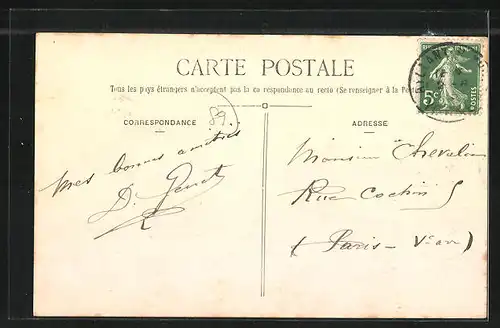 CARTE POSTALE
Tous les pays étrangers n'acceptent pas la correspondance au recto (Se renseigner à la Poste)
CORRESPONDANCE
ADRESSE
89
5c
POSTES
Mes bonnes amitiés
D.
Monsieur Chevalier
Rue Cochin 5
(Paris - Ve arr)